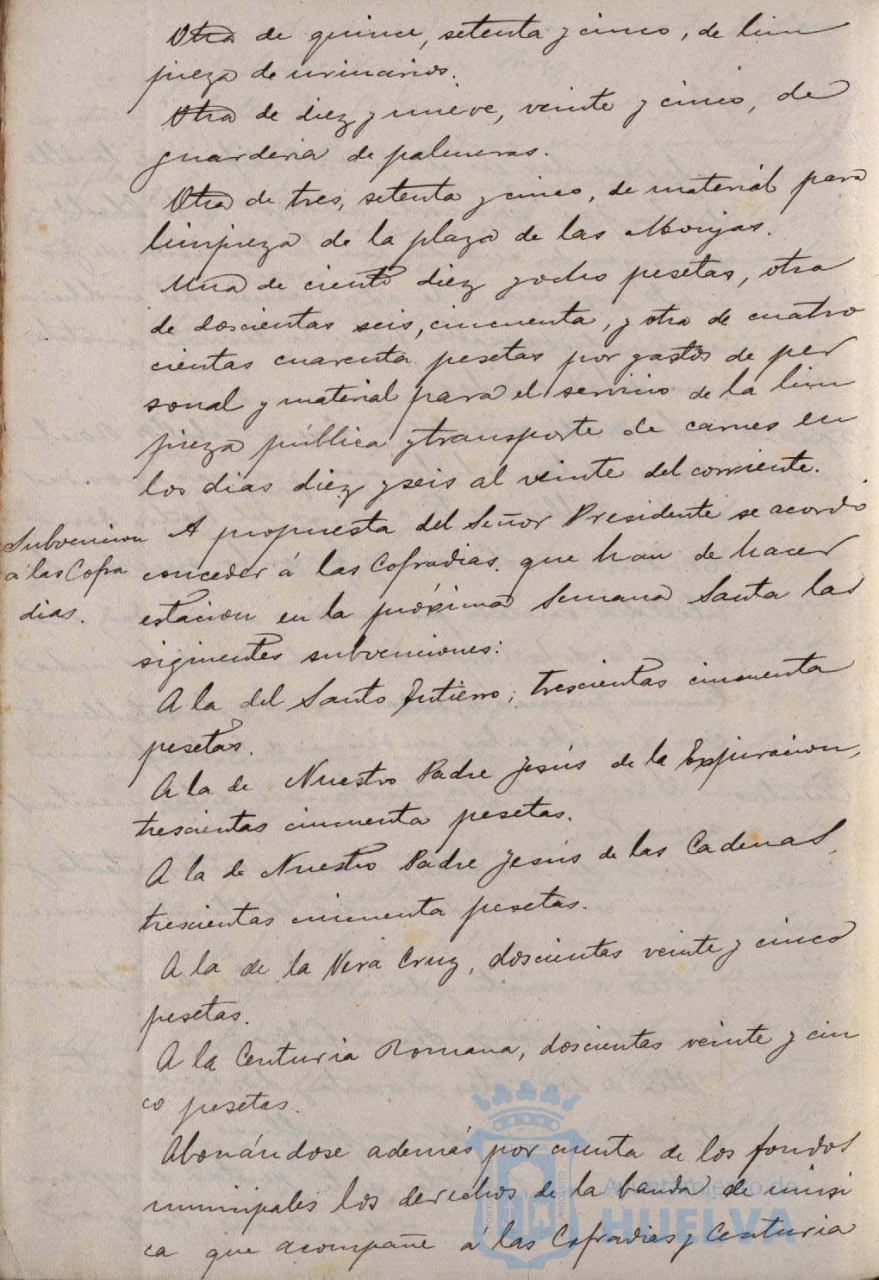 Otra de quince, setenta y cinco, de lim
pieza de urinarios.
Otra de diez y nueve, veinte y cinco, de
guarderia de palmeras.
Otra de tres, setenta y cinco, de material para
limpieza de la plaza de las Monjas.
Una de ciento diez y ocho pesetas, otra
de doscientas seis, cincuenta, y otra de cuatro
cientas cuarenta pesetas por gastos de per
sonal y material para el servicio de la lim
pieza pública y transporte de carnes en
los dias diez y seis al veinte del corriente.
Subvencion
á las Cofra
dias.
A propuesta del Señor Presidente se acordó
conceder á las Cofradias que han de hacer
estacion en la próxima Semana Santa las
siguientes subvenciones:
A la del Santo Entierro, trescientas cincuenta
pesetas.
A la de Nuestro Padre Jesús de la Expiracion,
trescientas cincuenta pesetas.
A la de Nuestro Padre Jesús de las Cadenas,
trescientas cincuenta pesetas.
A la de la Vera Cruz, doscientas veinte y cinco
pesetas.
A la Centuria Romana, doscientas veinte y cin
co pesetas.
Abonándose además por cuenta de los fondos
municipales los derechos de la banda de músi
ca que acompañe á las Cofradias y Centuria
Ayuntamiento de
HUELVA